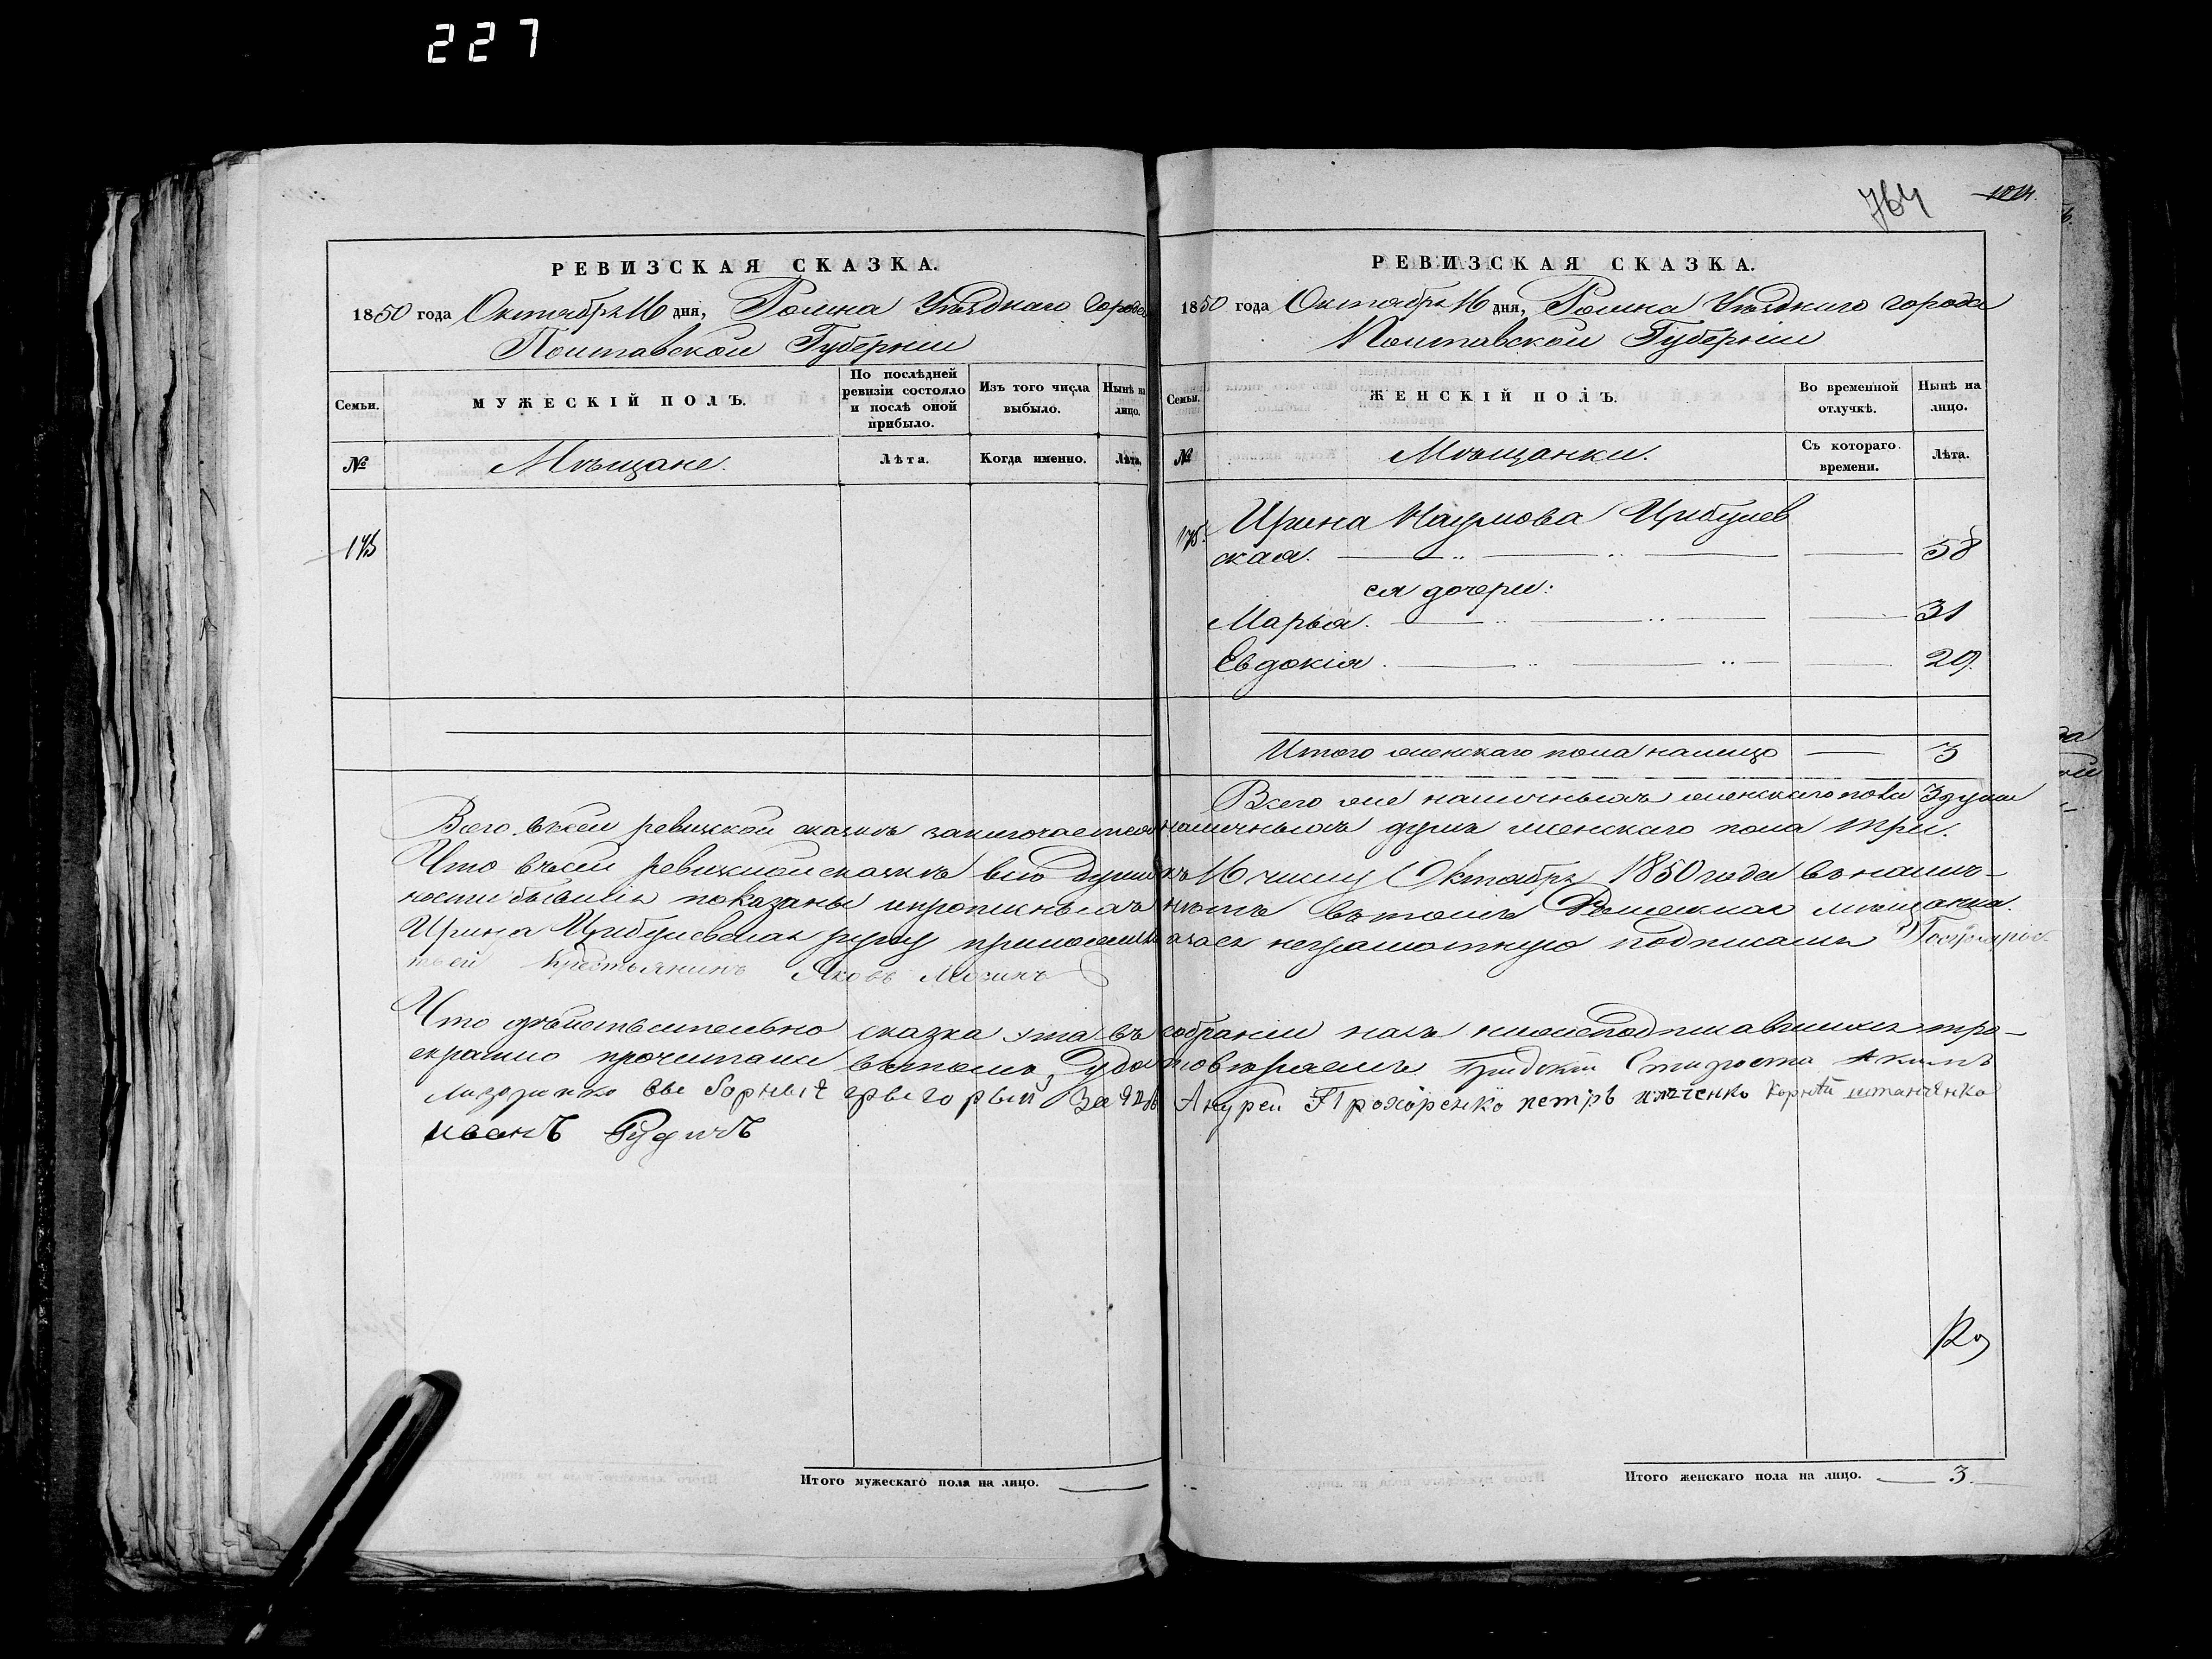 227
764 1014.
РЕВИЗСКАЯ СКАЗКА.
1850 года Октября 16 дня, Ромна Уѣзднаго города
Полтавской Губерніи
Семьи.
МУЖЕСКІЙ ПОЛЪ.
По послѣдней ревизіи состояло и послѣ оной прибыло.
Изъ того числа выбыло.
Нынѣ на лицо.
№
Мѣщане.
Лѣта.
Когда именно.
Лѣта.
175
РЕВИЗСКАЯ СКАЗКА.
1850 года Октября 16 дня, Ромна Уѣзднаго города
Полтавской Губерніи
Семьи.
ЖЕНСКІЙ ПОЛЪ.
Во временной отлучкѣ.
Нынѣ на лицо.
№
Мѣщанки.
Съ котораго времени.
Лѣта.
175. Ирина Наумова Цибулев
ская. 58
ея дочери:
Марья. 31
Евдокія. 29.
Итого женскаго пола налицо 3
Всего же наличныхъ женскаго пола 3 души
Всего въ сей ревизской сказкѣ заключается наличныхъ душъ женскаго пола три.
Что въ сей ревизской сказкѣ всѣ души къ 16 числу Октября 1850 года въ налич-
ности бывшія показаны и прописныхъ нѣтъ въ томъ Роменская мѣщанка
Ирина Цибулевская
крестьянинъ Яковъ
Что дѣйствительно сказка эта въ собраніи насъ нижеподписавшихся тро-
екратно прочитана въ томъ удостовѣряемъ Градскій Староста Акимъ
Прохоренко петръ
иванъ Рудичъ
Итого мужескаго пола на лицо.
Итого женскаго пола на лицо. 3.